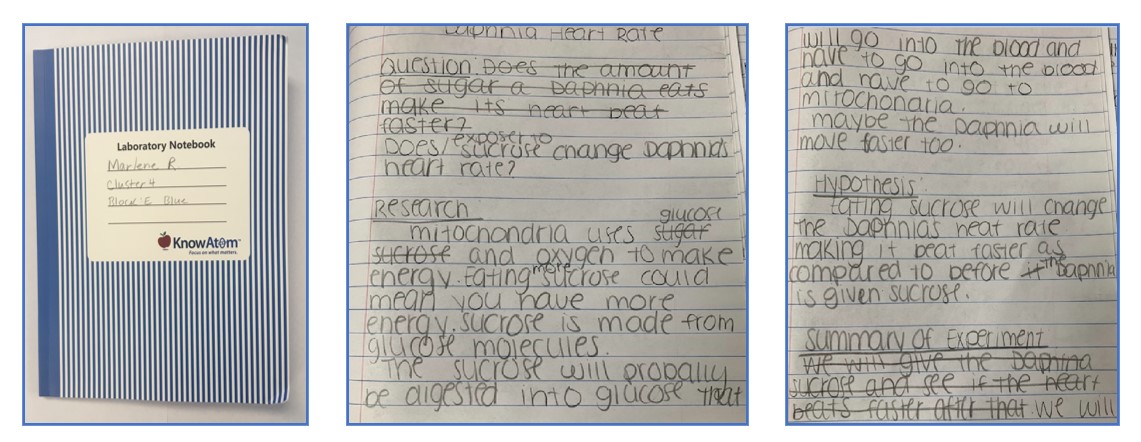 Laboratory Notebook
Marlene R
Cluster 4
Block: E Blue
KnowAtom™
Focus on what matters.
Daphnia Heart Rate
Question: Does the amount
of sugar a Daphnia eats
make its heart beat
faster?
exposer to
Does/sucrose change Daphnias
heart rate?
Research
glucose
mitochondria uses sugar
sucrose and oxygen to make
more
energy. Eating sucrose could
mean you have more
energy. sucrose is made from
glucose molecules.
The sucrose will probally
be digested into glucose that
will go into the blood and
have to go into the blood
and have to go to
mitochondria.
maybe the Daphnia will
move faster too.
Hypothesis:
Eating sucrose will change
the Daphnias heat rate
making it beat faster as
compared to before it the Daphnia
is given sucrose.
Summary of Experiment
We will give the Daphina
sucrose and see if the heart
beats faster after that. We will